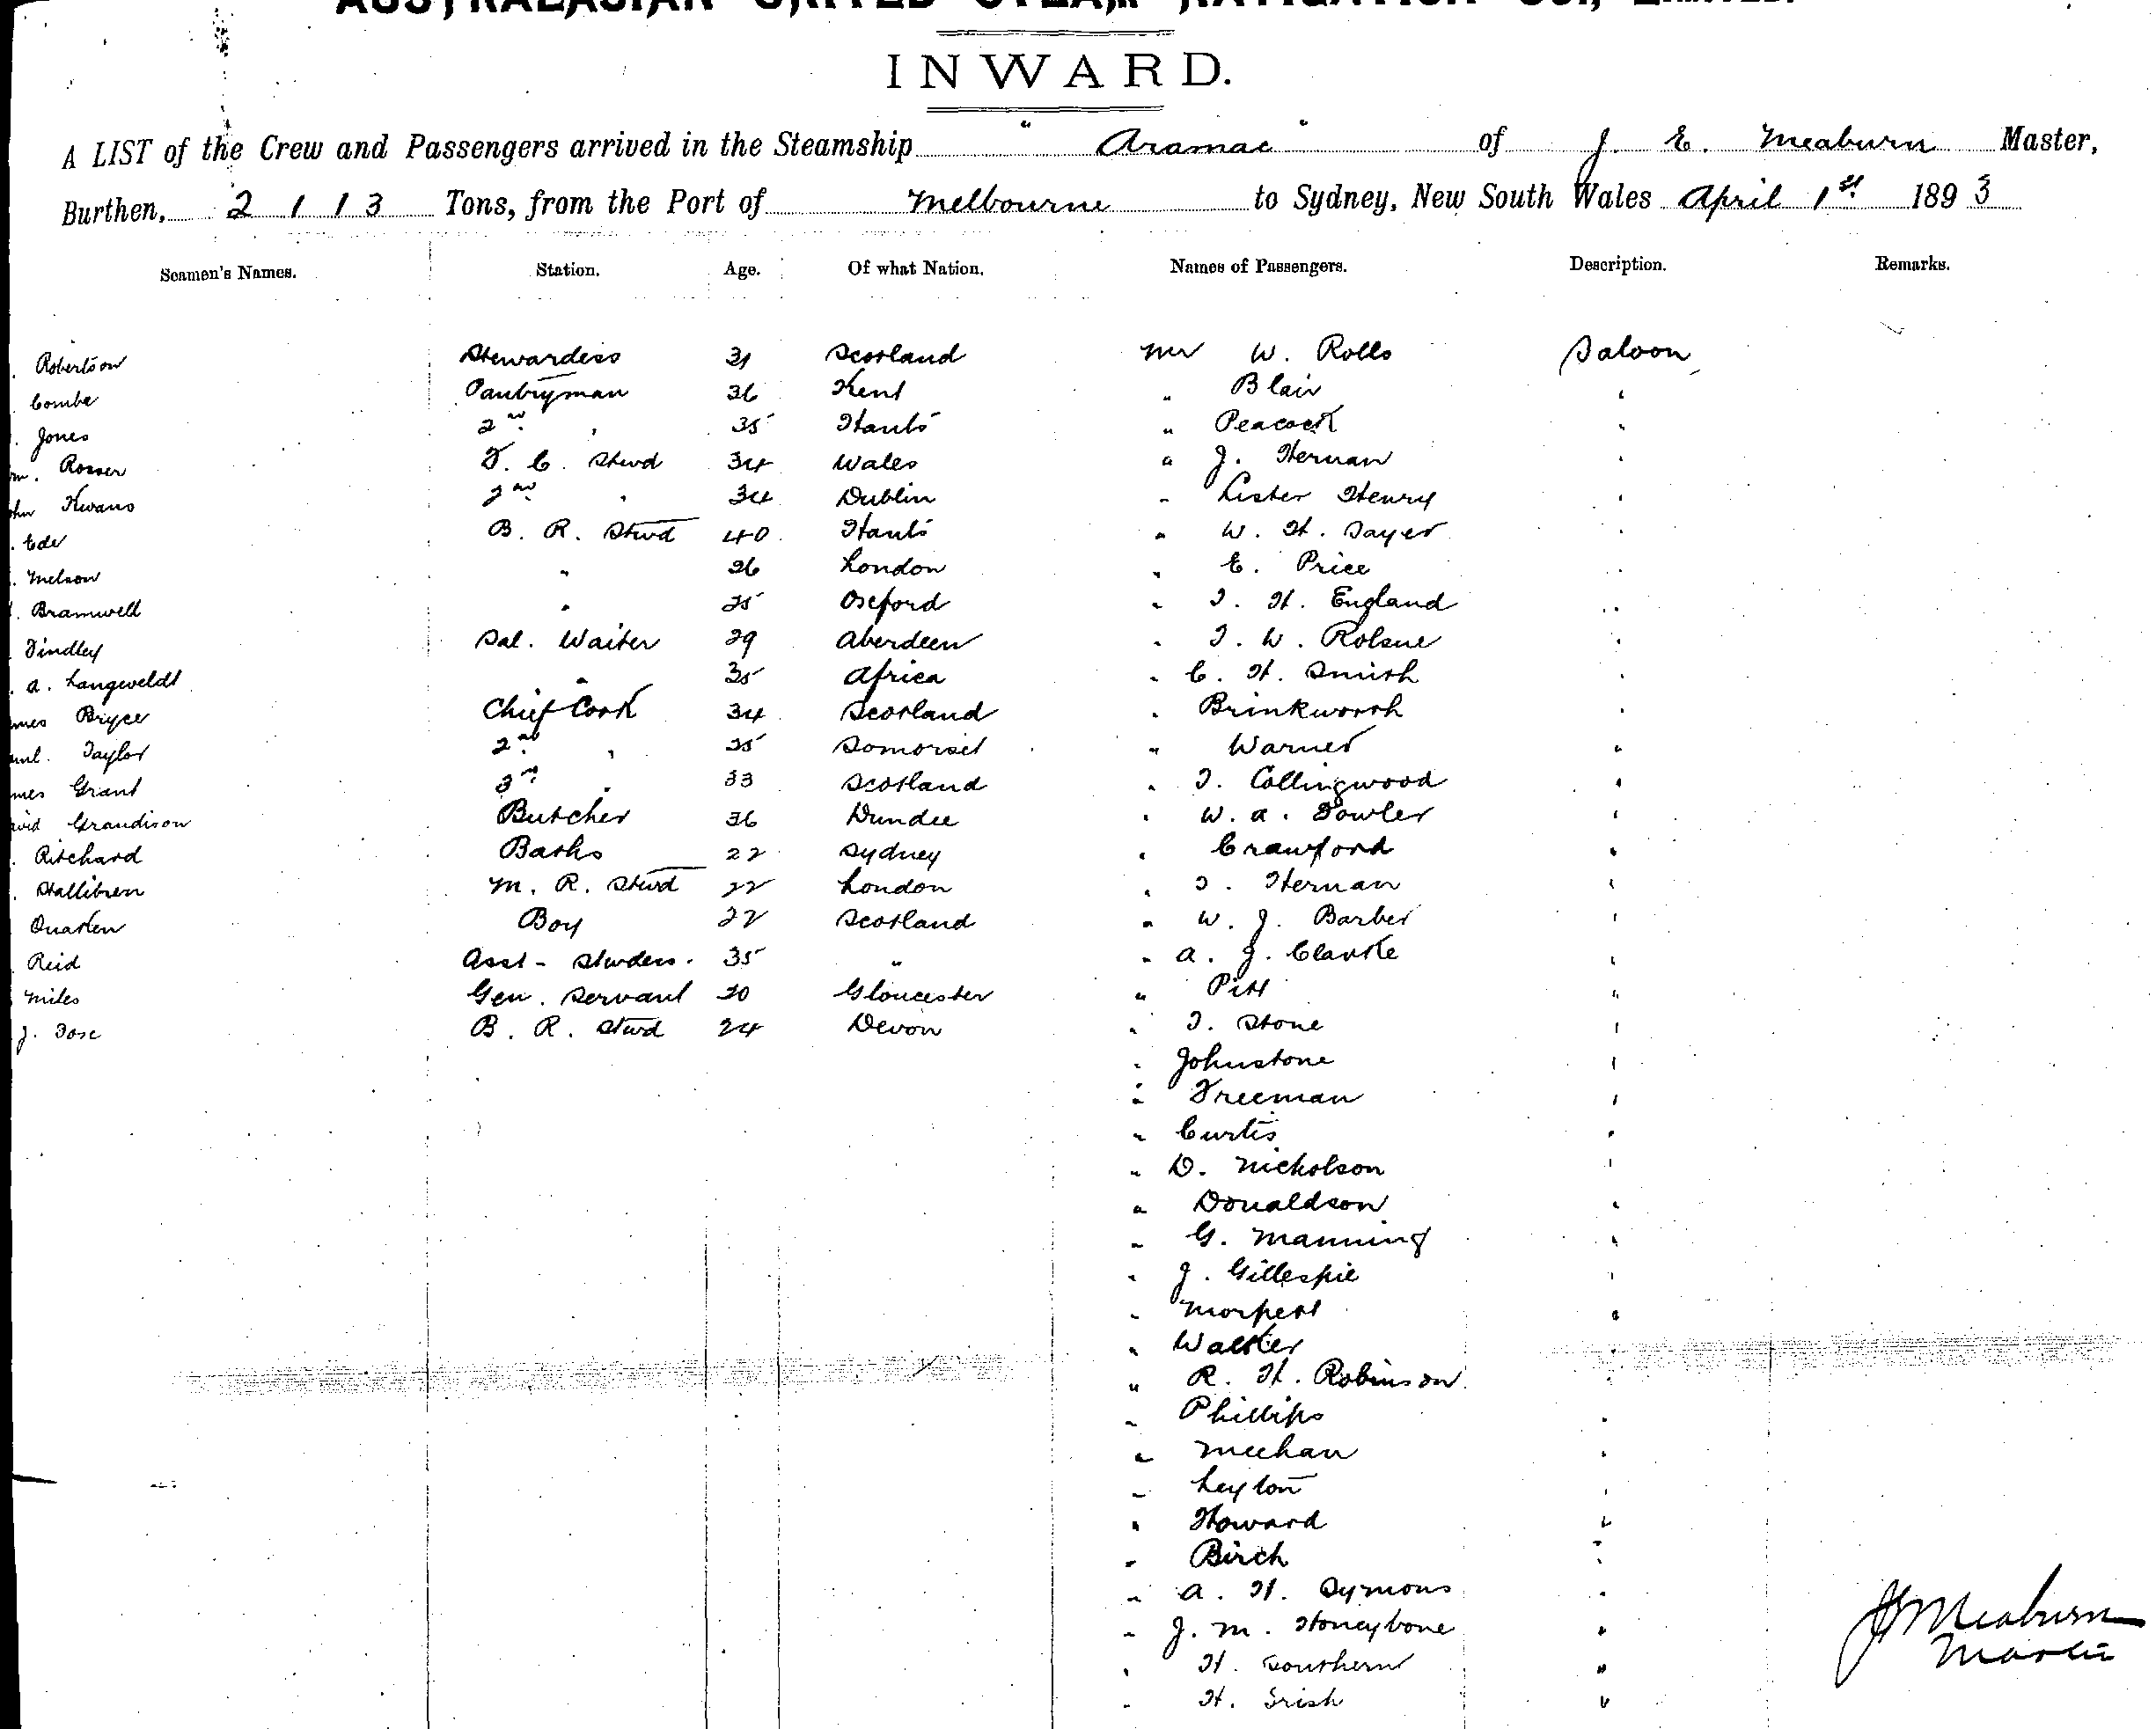 AUSTRALASIAN UNITED STEAM NAVIGATION CO., LIMITED.
INWARD.
A LIST of the Crew and Passengers arrived in the Steamship "Aramac" of J. E. Meaburn Master,
Burthen, 2113 Tons, from the Port of Melbourne to Sydney, New South Wales April 1st 1893
Seamen's Names. Station. Age. Of what Nation. Names of Passengers. Description. Remarks.
Robertson Stewardess 31 Scotland Mr W. Rolls Saloon
Combe Pantryman 36 Kent " Blair "
Jones 2nd " 35 Hants " Peacock "
m. Rosser F. C. Stwd 34 Wales " J. Hernan "
ohn Kwans 2nd " 34 Dublin " Lister Henry "
Ede B. R. Stwd 40 Hants " W. H. Sayer "
Melson " 26 London " E. Price "
Bramwell " 25 Oxford " T. H. England "
Findley Sal. Waiter 29 Aberdeen " T. W. "
A. Langweldt " 35 Africa " C. H. Smith "
mes Bryce Chief Cook 34 Scotland " Brinkworth "
ml. Taylor 2nd " 25 Somerset " Warner "
mes Grant 3rd " 33 Scotland " T. Collingwood "
avid Grandison Butcher 36 Dundee " W. A. Fowler "
Ritchard Baths 22 Sydney " Crawford "
M. R. Stwd 22 London " T. Hernan "
Boy 22 Scotland " W. J. Barber "
Reid Asst - Stwdess. 35 " " A. J. Clarke "
Miles Gen. Servant 20 Gloucester " Pitt "
J. Tose B. R. Stwd 24 Devon " T. Stone "
" Johnstone "
" Freeman "
" Curtis "
" D. Nicholson "
" Donaldson "
" G. Manning "
" J. Gillespie "
" Morpett "
" Walker "
" R. H. Robinson "
" Phillips "
" Meehan "
" Leyton "
" Howard "
" Birch "
" A. H. Symons "
" J. M. Honeybone "
" H. Southern "
" H. Irish "
J E Meaburn
Master